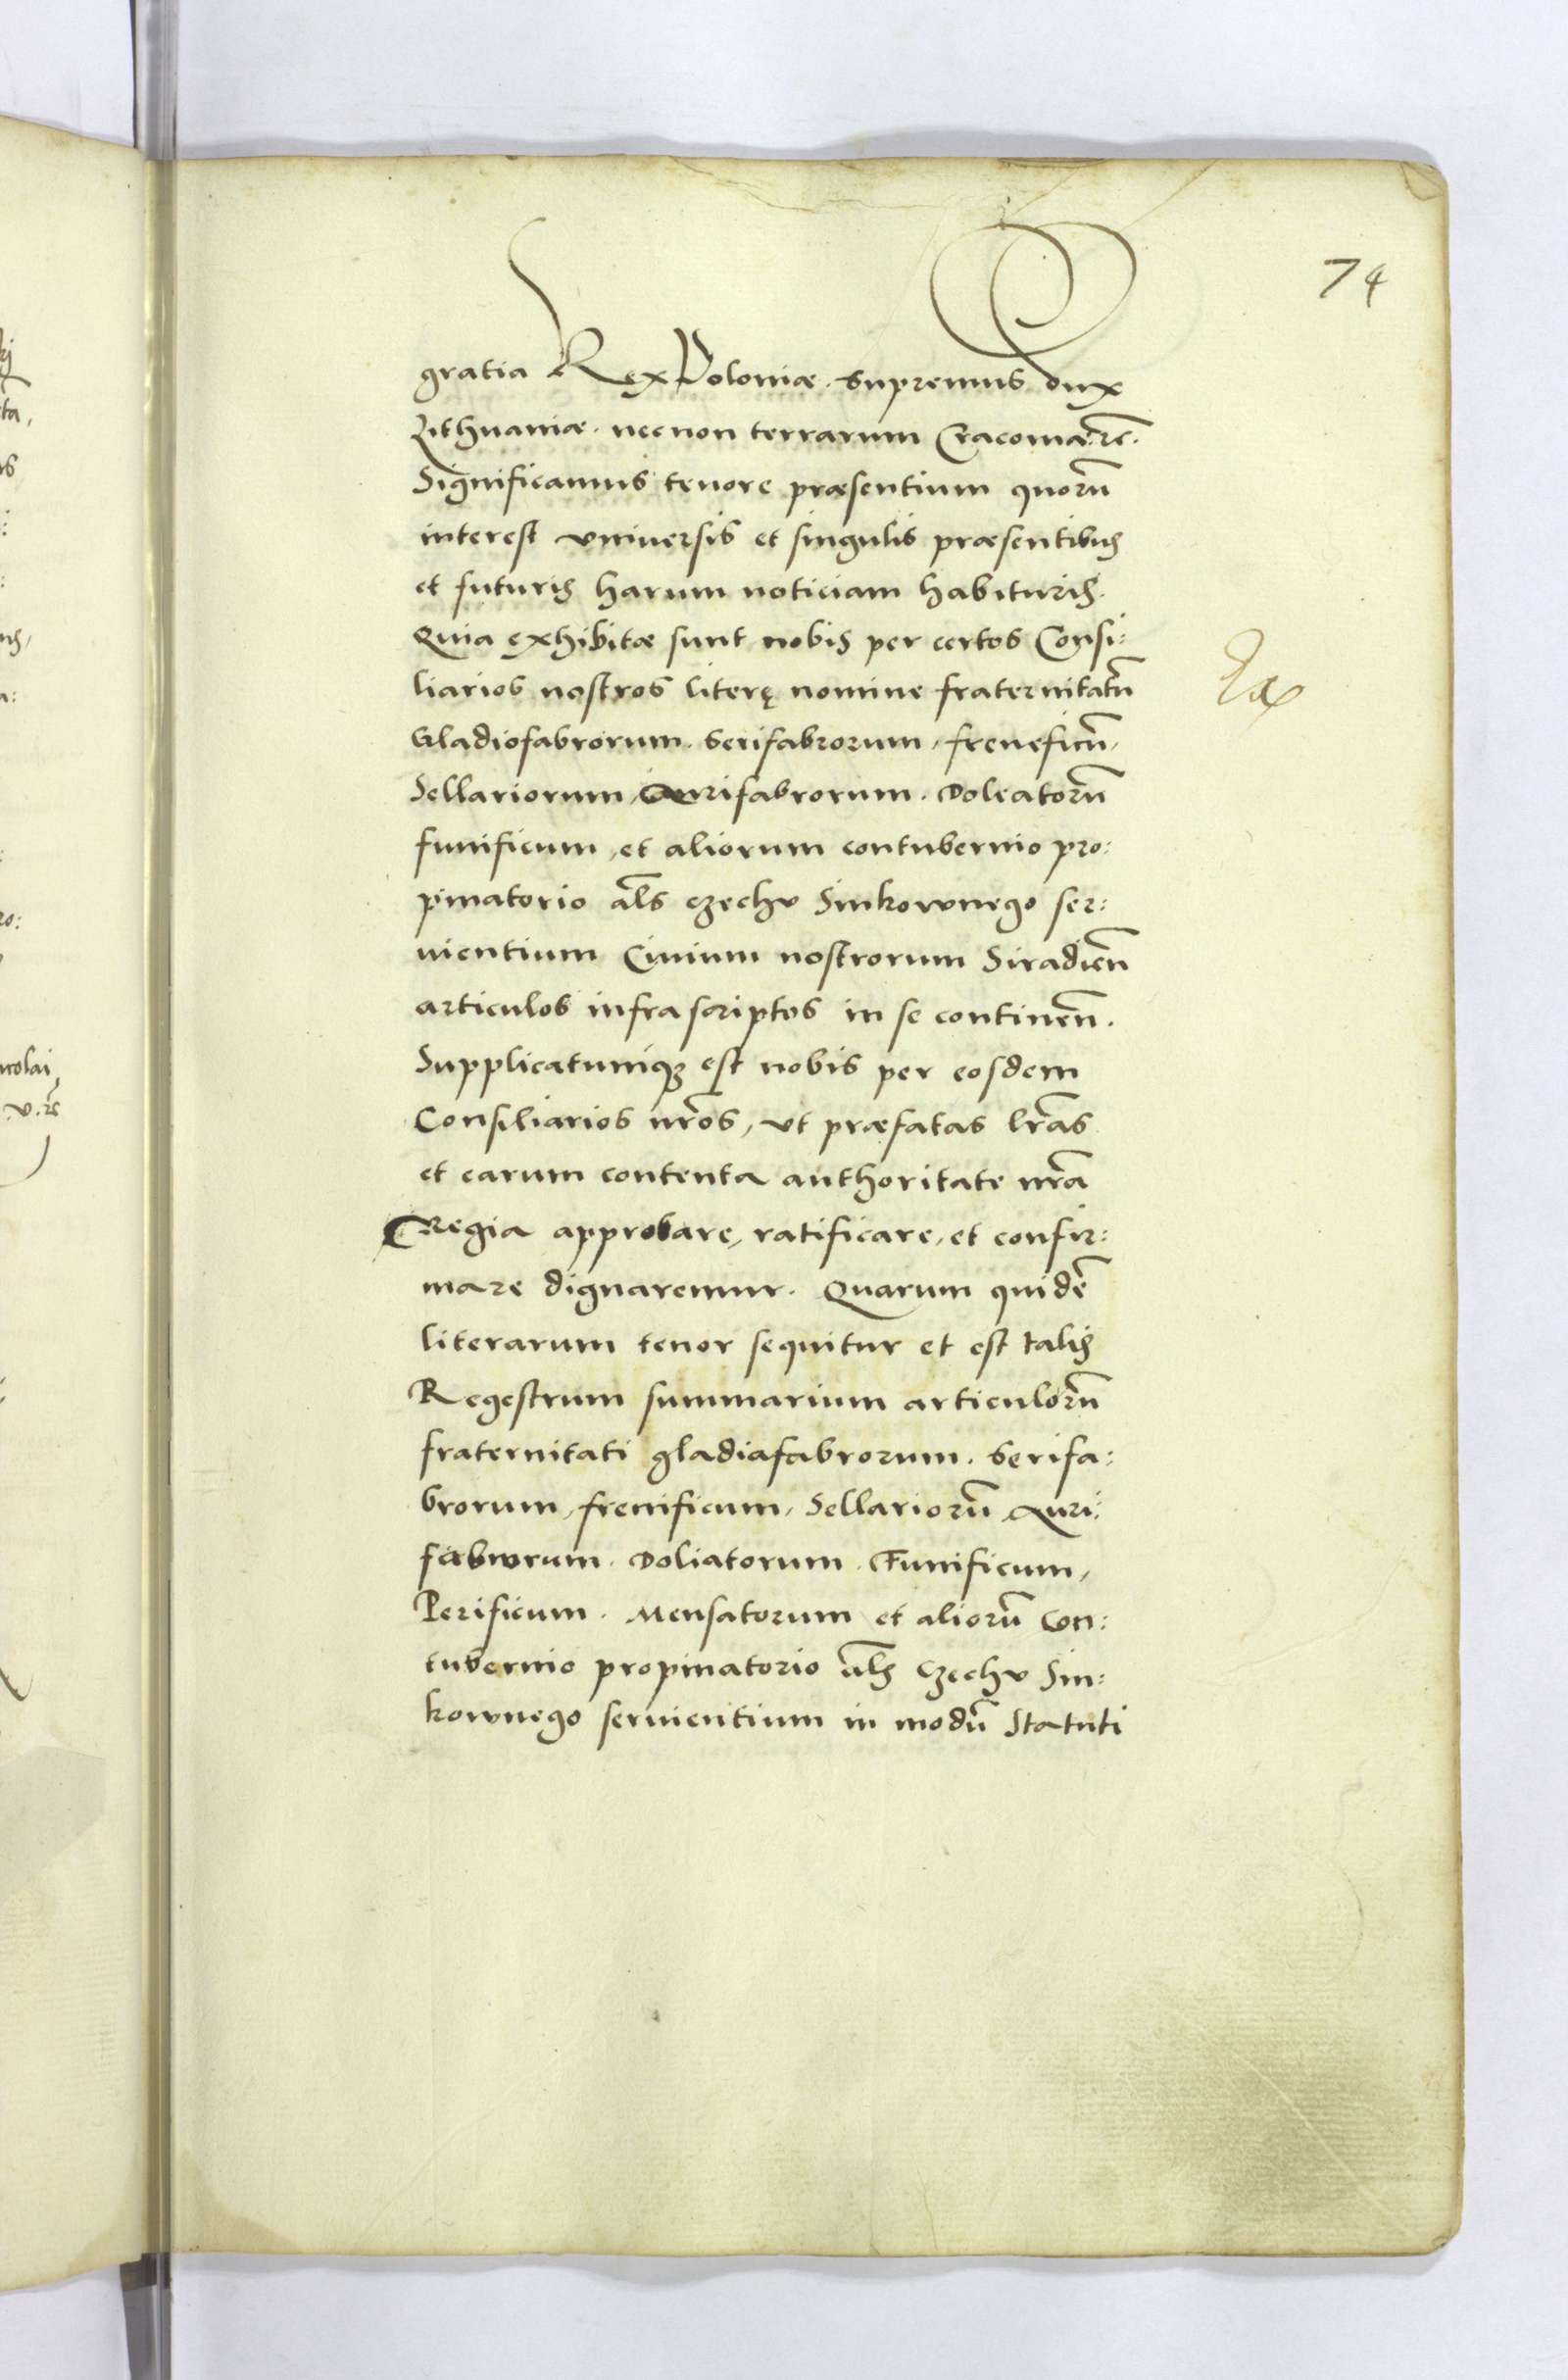 74
gratia Rex Poloniæ. supremus dux
Lithuaniæ. necnon terrarum Cracouiæ. rc̃.
Significamus tenore præsentium quorũ
interest vniuersis et singulis præsentibus
et futuris harum noticiam habituris.
Quia exhibitæ sunt nobis per certos Consi:
liarios nostros literę nomine fraternitatũ
Gladiofabrorum. Serifabrorum, freneficũ,
Sellariorum, Aurifabrorum. Doleatorũ
funificum, et aliorum contubernio pro:
pinatorio al̃s czechv Sinkownego ser:
uientium Ciuium nostrorum Siradieñ
articulos infrascriptos in se contineñ.
Supplicatumqz est nobis per eosdem
Consiliarios nr̃os, vt præfatas lr̃as
et earum contenta authoritate nr̃a
Regia approbare, ratificare, et confir:
mare dignaremur. Quarum quidẽ
literarum tenor sequitur et est talis
Regestrum summarium articulorũ
fraternitati gladiafabrorum. Serifa:
brorum, frenificum, Sellariorũ Auri:
fabrorum. Doliatorum. Funificum,
Perificum. Mensatorum et aliorũ con:
tubernio propinatorio al̃s Czechv Sin:
kownego seruientium in modũ Statuti